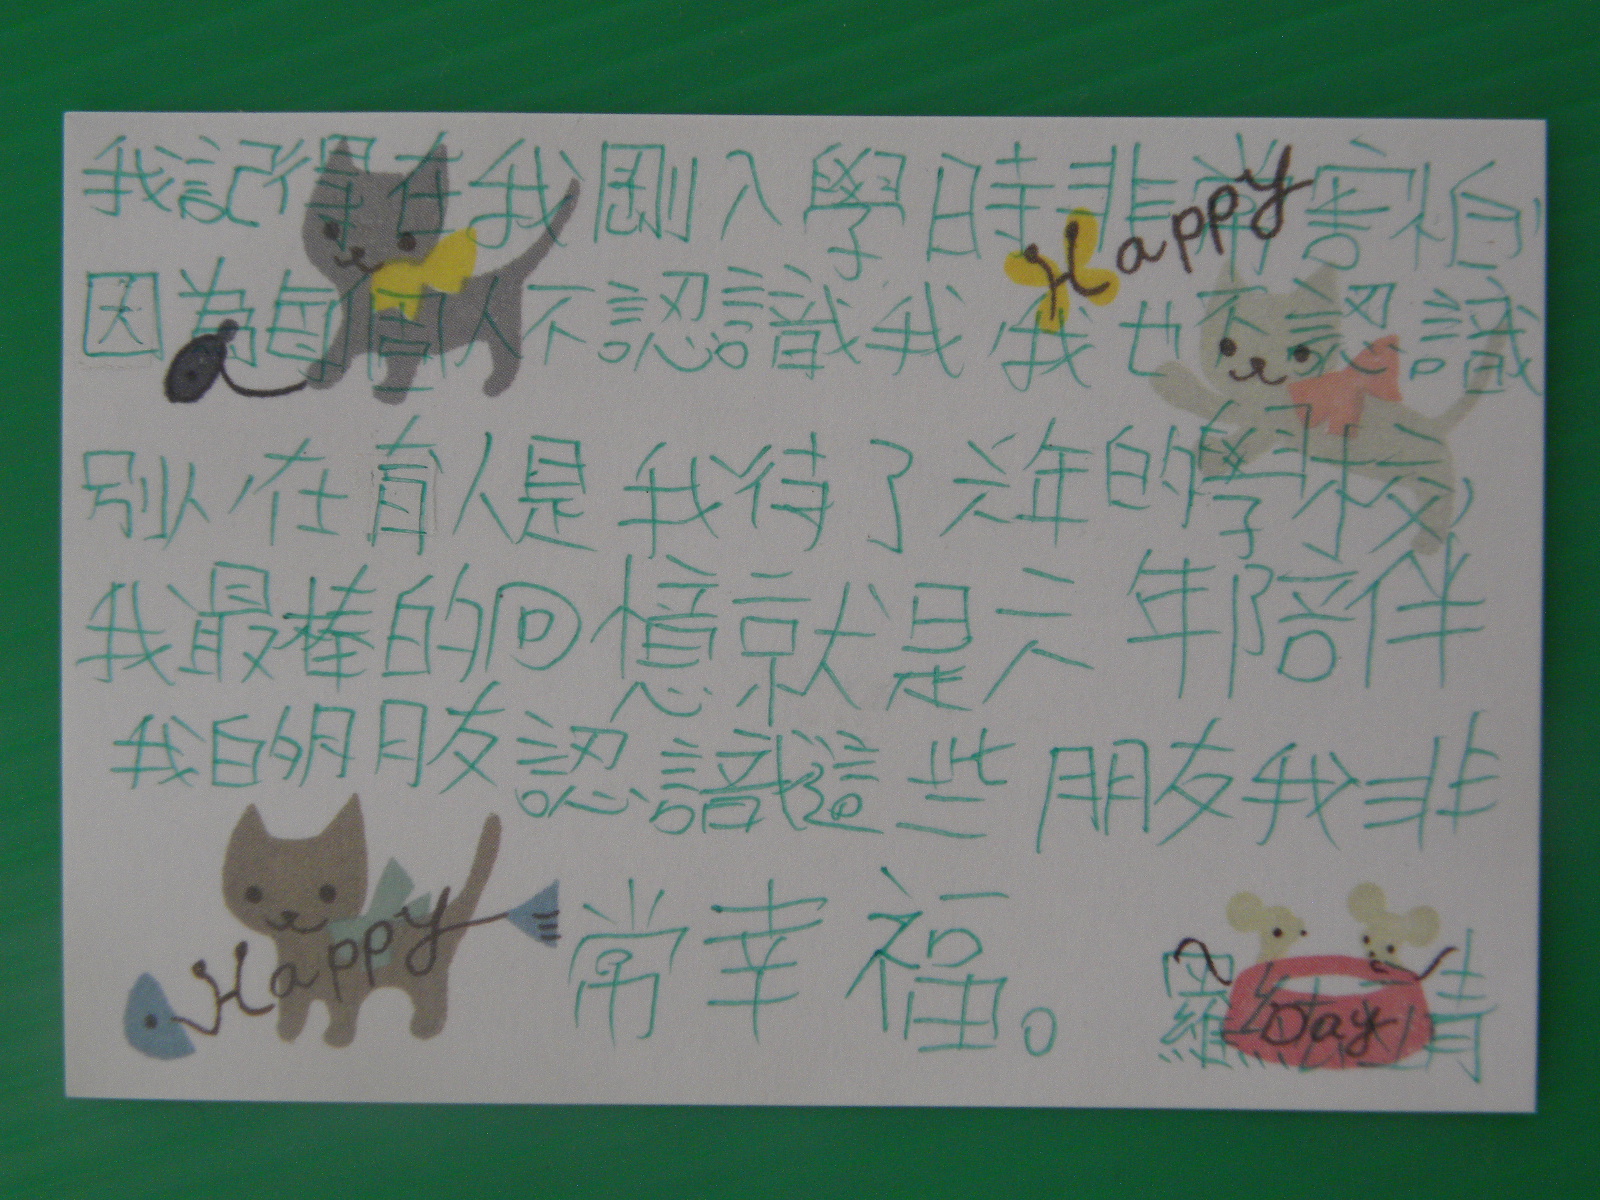 我記得在我剛入學時非常害怕,
Happy
因為每個人不認識我 我也不認識
別人 在真人是我待了六年的學校
我最棒的回憶就是六年陪伴
我的朋友認識這些朋友我非
常幸福。
Happy
Day
羅 清